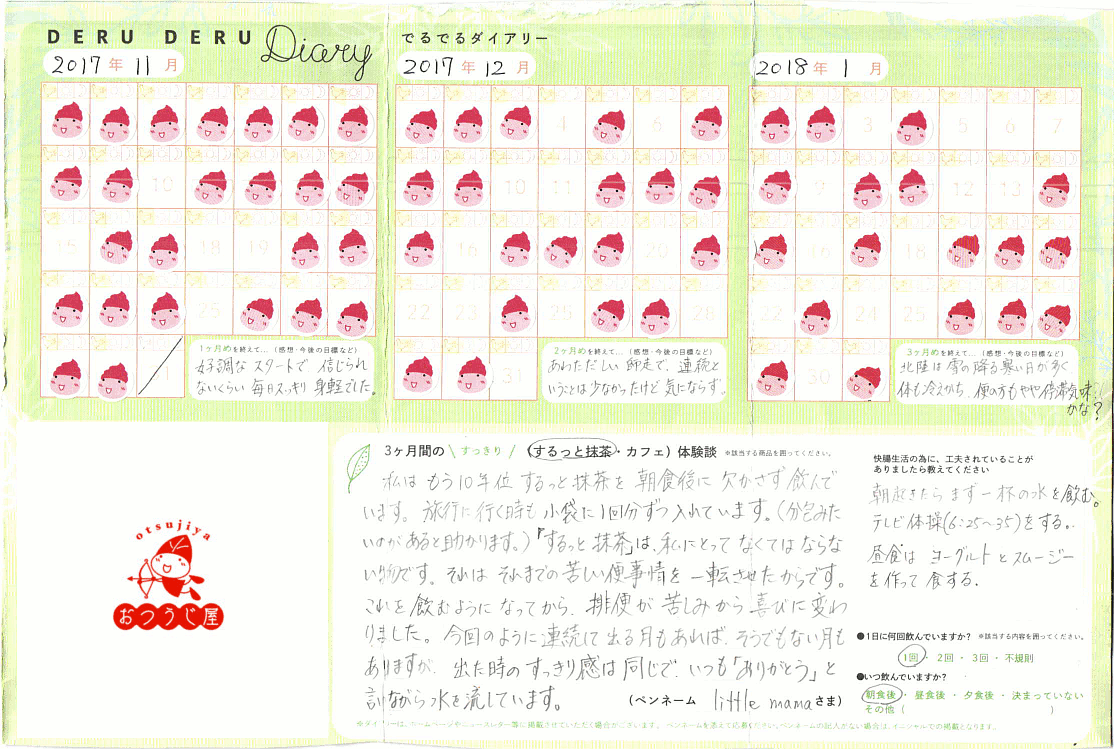 DERU DERU Diary でるでるダイアリー
2017年 11月
2017年 12月
2018年 1月
10
15 18 19
25
1ヶ月めを終えて…（感想・今後の目標など）
好調なスタートで 信じられ
ないくらい 毎日スッキリ 身軽でした。
4 6
10 11
16 20
22 23 25 28
31
2ヶ月めを終えて…（感想・今後の目標など）
あわただしい 師走で、連続と
いうことは少なかったけど 気にならず。
3 5 6 7
9 12 13
16 18
22 24 25
30
3ヶ月めを終えて…（感想・今後の目標など）
北陸は雪の降る寒い日が多く
体も冷えがち、便の方もやや停滞気味
かな？
otsujiya
おつうじ屋
3ヶ月間の \ すっきり / （するっと抹茶・カフェ）体験談 ※該当する商品を囲ってください。
私は もう10年位 するっと抹茶を 朝食後に 欠かさず 飲んで
います。旅行に行く時も 小袋に1回分ずつ入れています。（分包みた
いのがあると助かります。）「するっと抹茶」は、私にとって なくてはならな
い物です。それは それまでの 苦しい便事情を 一転させたからです。
これを飲むようになってから、排便が 苦しみから 喜びに変わ
りました。今回のように連続して 出る月もあれば、そうでもない月も
ありますが、出た時の すっきり感は 同じで、いつも「ありがとう」と
言いながら 水を流しています。
（ペンネーム little mama さま）
※ダイアリーは、ホームページやニュースレター等に掲載させていただく場合がございます。ペンネームを添えて応募ください。ペンネームの記入がない場合は、イニシャルでの掲載となります。
快腸生活の為に、工夫されていることが
ありましたら教えてください
朝起きたら まず 一杯の水を飲む。
テレビ体操(6:25〜35)をする。
昼食は ヨーグルトとスムージー
を作って 食する。
●1日に何回飲んでいますか？ ※該当する内容を囲ってください。
1回・2回・3回・不規則
●いつ飲んでいますか？
朝食後・昼食後・夕食後・決まっていない
その他（ ）